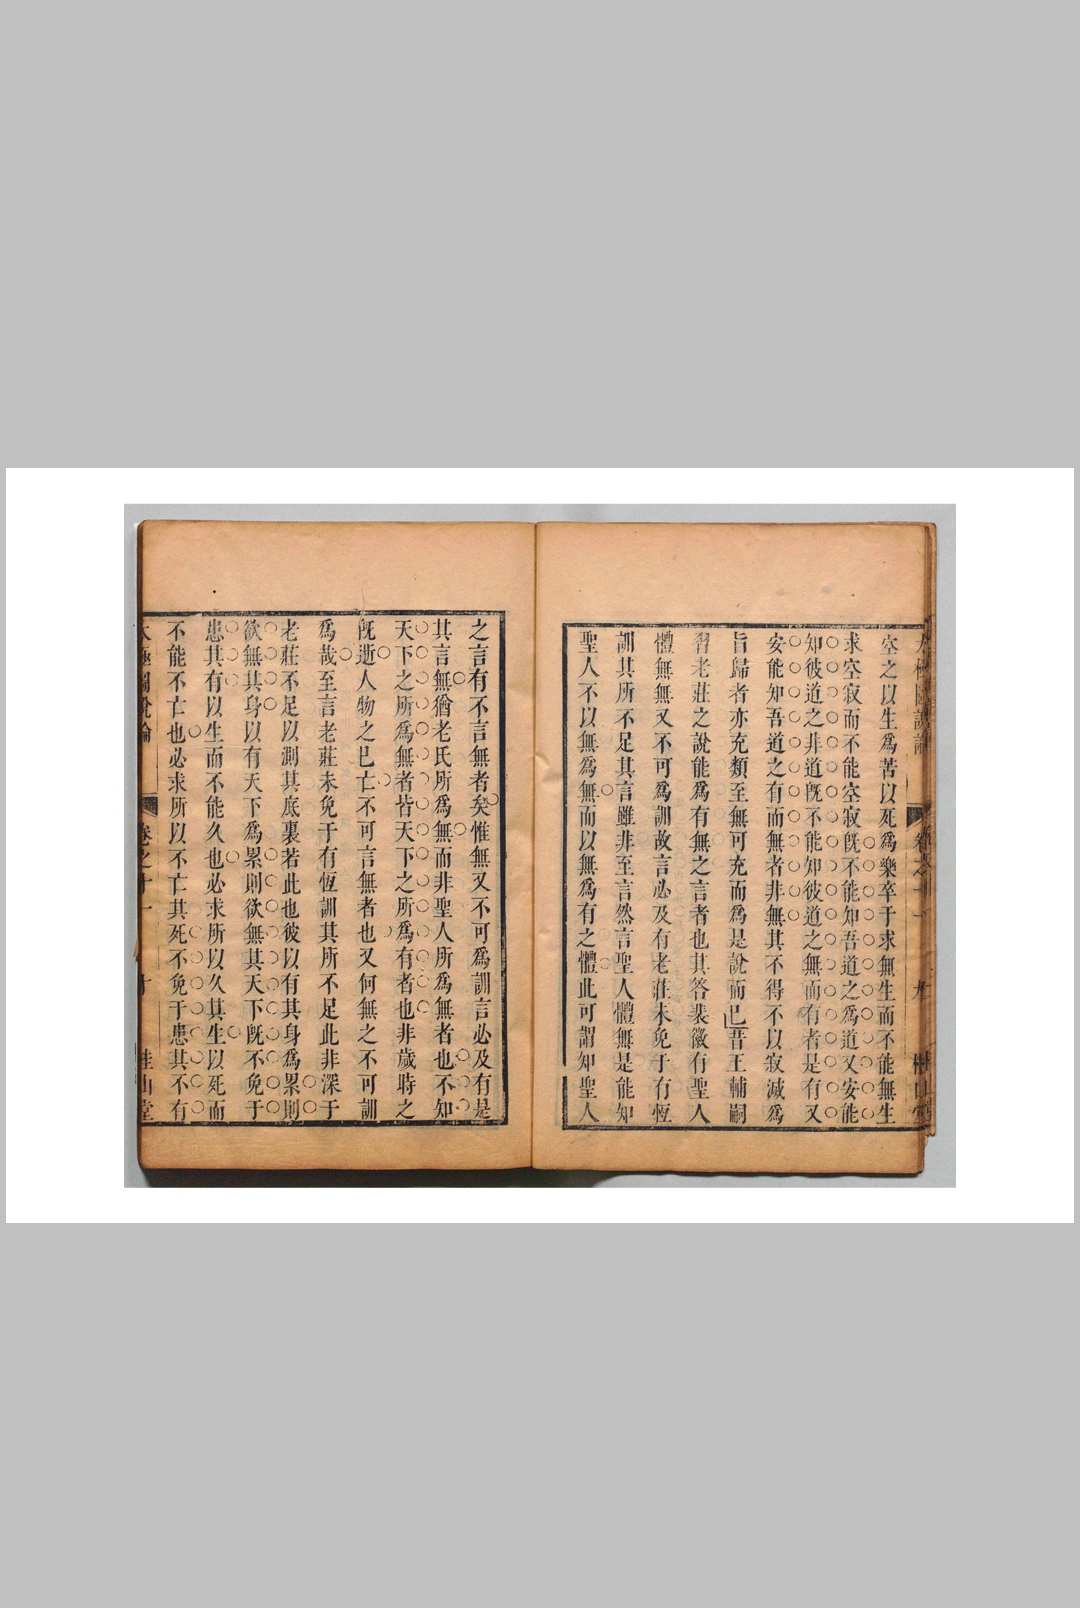 空之以生爲苦以死爲樂卒于求無生而不能無生
求空寂而不能空寂旣不能知吾道之爲道又安能
知彼道之非道旣不能知彼道之無而有者是有又
安能知吾道之有而無者非無其不得不以寂滅爲
旨歸者亦充類至無可充而爲是說而已昔王輔嗣
習老莊之說能爲有無之言者也其答裴徽有聖人
體無無又不可爲訓故言必及有老莊未免于有恆
訓其所不足其言雖非至言然言聖人體無是能知
聖人不以無爲無而以無爲有之體此可謂知聖人
之言有不言無者矣惟無又不可爲訓言必及有是
其言無猶老氏所爲無而非聖人所爲無者也不知
天下之所爲無者皆天下之所爲有者也非歲時之
旣逝人物之已亡不可言無者也又何無之不可訓
爲哉至言老莊未免于有恆訓其所不足此非深于
老莊不足以測其底裏若此也彼以有其身爲累則
欲無其身以有天下爲累則欲無其天下旣不免于
患其有以生而不能久也必求所以久其生以死而
不能不亡也必求所以不亡其死不免于患其不有
太極圖說論 卷之十一 十 桂山堂